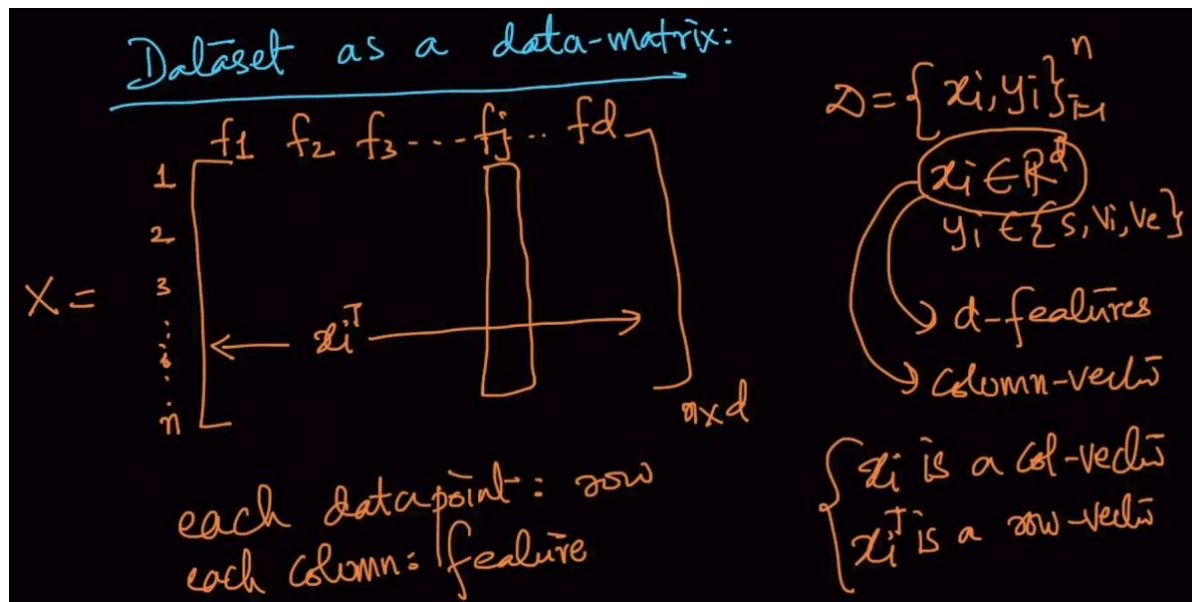 Dataset as a data-matrix:
f1 f2 f3 ---- fj .. fd
1
2
3
⋮
i
⋮
n
X =
xiᵀ
n×d
each datapoint: row
each column: feature
D = {xi, yi}ⁿi=1
xi ∈ ℝᵈ
yi ∈ {S, Vi, Ve}
d-features
column-vector
xi is a col-vector
xiᵀ is a row-vector